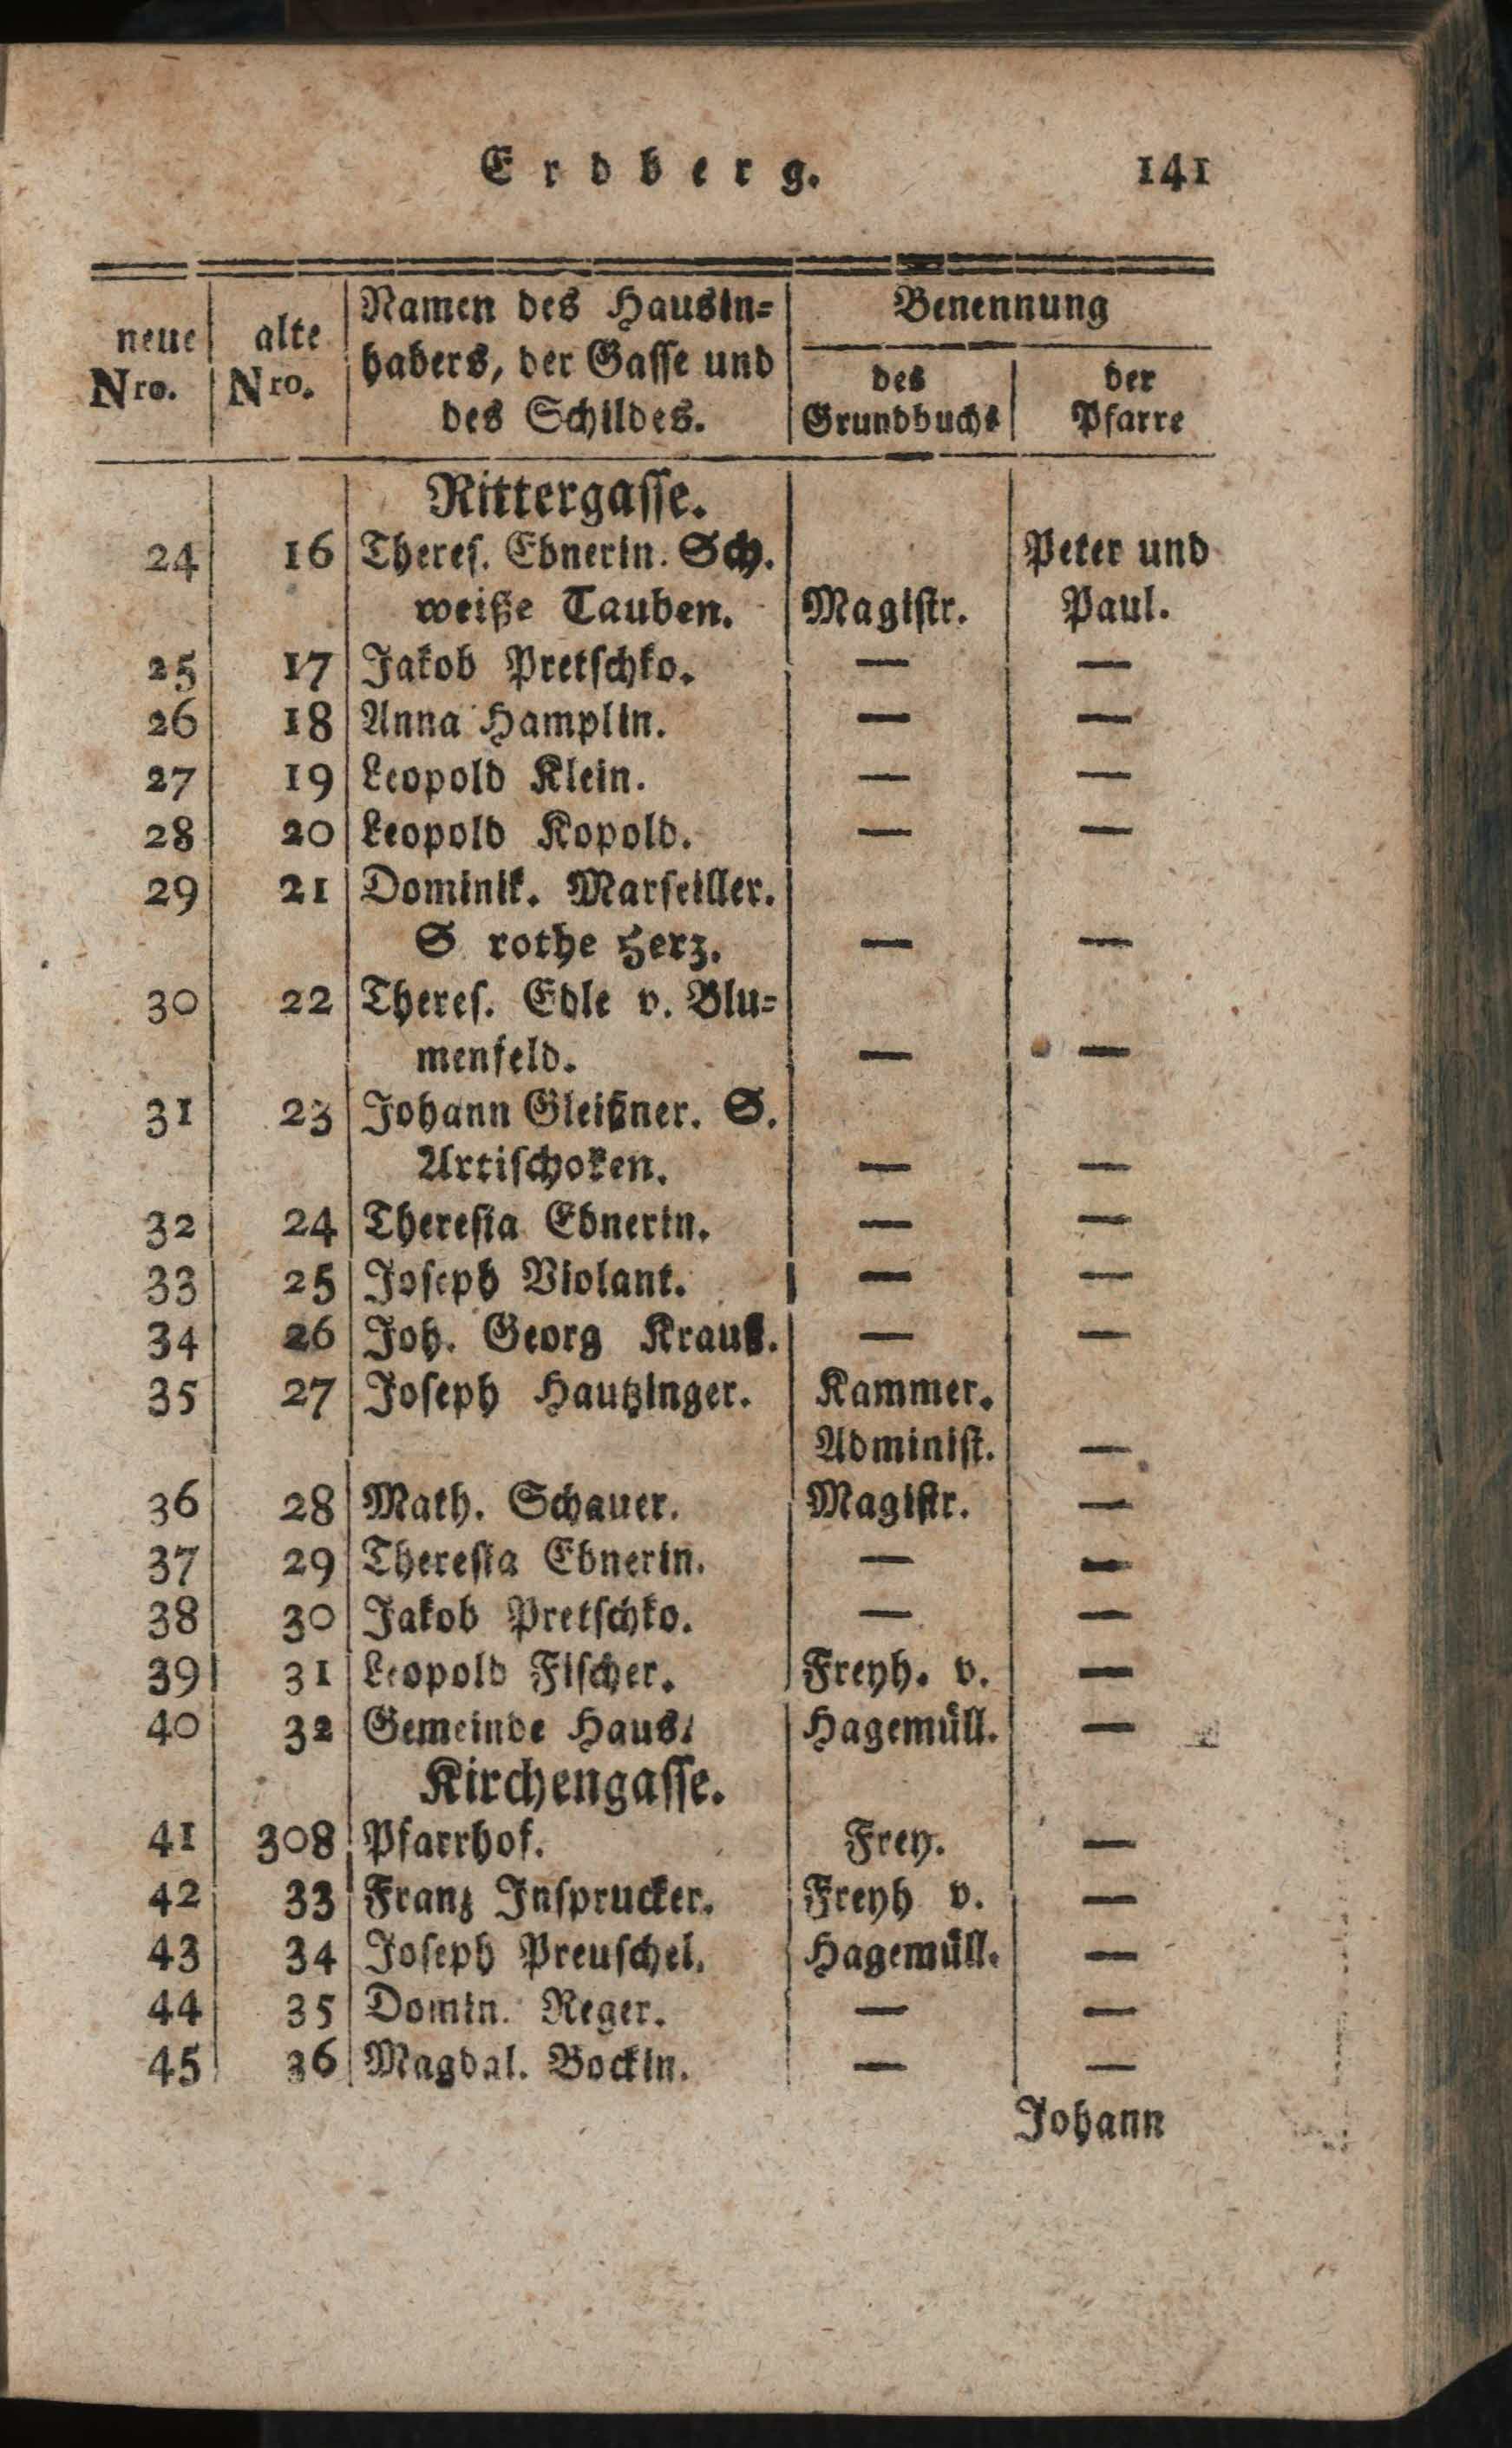 Erdberg. 141
neue Nro. alte Nro. Namen des Hausin- Benennung
habers, der Gasse und des der
des Schildes. Grundbuchs Pfarre
Rittergasse.
24 16 Theres. Ebnerin. Sch. Peter und
weiße Tauben. Magistr. Paul.
25 17 Jakob Pretschko. — —
26 18 Anna Hamplin. — —
27 19 Leopold Klein. — —
28 20 Leopold Kopold. — —
29 21 Dominik. Marseiller.
S rothe Herz. — —
30 22 Theres. Edle v. Blu-
menfeld. — —
31 23 Johann Gleißner. S.
Artischoken. — —
32 24 Theresia Ebnerin. — —
33 25 Joseph Violant. — —
34 26 Joh. Georg Krauß. — —
35 27 Joseph Hautzinger. Kammer.
Administ. —
36 28 Math. Schauer. Magistr. —
37 29 Theresia Ebnerin. — —
38 30 Jakob Pretschko. — —
39 31 Leopold Fischer. Freyh. v. —
40 32 Gemeinde Haus. Hagemüll. —
Kirchengasse.
41 308 Pfarrhof. Frey. —
42 33 Franz Insprucker. Freyh v. —
43 34 Joseph Preuschel. Hagemüll. —
44 35 Domin. Reger. — —
45 36 Magdal. Bockin. — —
Johann